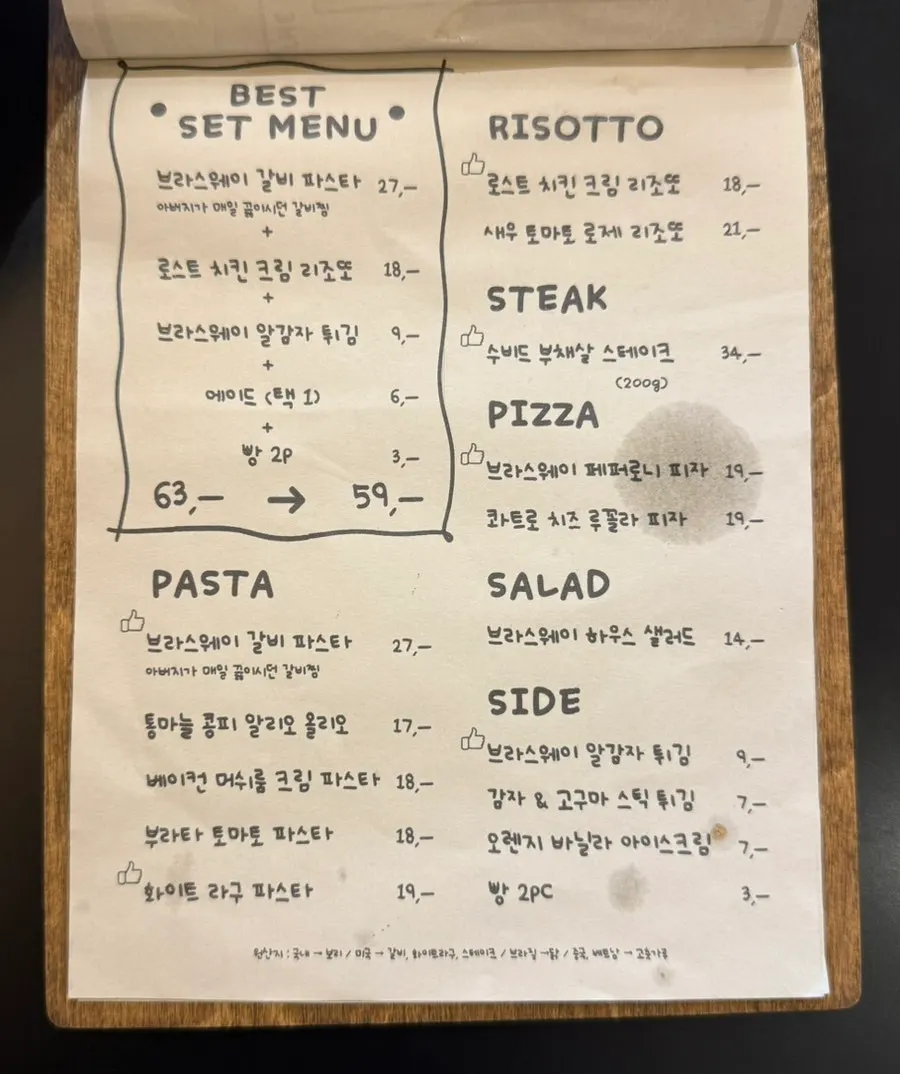 BEST
SET MENU
브라스웨이 갈비 파스타 27,—
아버지가 매일 끓이시던 갈비찜
+
로스트 치킨 크림 리조또 18,—
+
브라스웨이 알감자 튀김 9,—
+
에이드 (택 1) 6,—
+
빵 2P 3,—
63,— → 59,—
PASTA
브라스웨이 갈비 파스타 27,—
아버지가 매일 끓이시던 갈비찜
통마늘 콩피 알리오 올리오 17,—
베이컨 머쉬룸 크림 파스타 18,—
부라타 토마토 파스타 18,—
화이트 라구 파스타 19,—
RISOTTO
로스트 치킨 크림 리조또 18,—
새우 토마토 로제 리조또 21,—
STEAK
수비드 부채살 스테이크 34,—
(200g)
PIZZA
브라스웨이 페퍼로니 피자 19,—
콰트로 치즈 루꼴라 피자 19,—
SALAD
브라스웨이 하우스 샐러드 14,—
SIDE
브라스웨이 알감자 튀김 9,—
감자 & 고구마 스틱 튀김 7,—
오렌지 바닐라 아이스크림 7,—
빵 2PC 3,—
원산지 : 국내 → 보리 / 미국 → 갈비, 화이트라구, 스테이크 / 브라질 → 닭 / 중국, 베트남 → 고춧가루